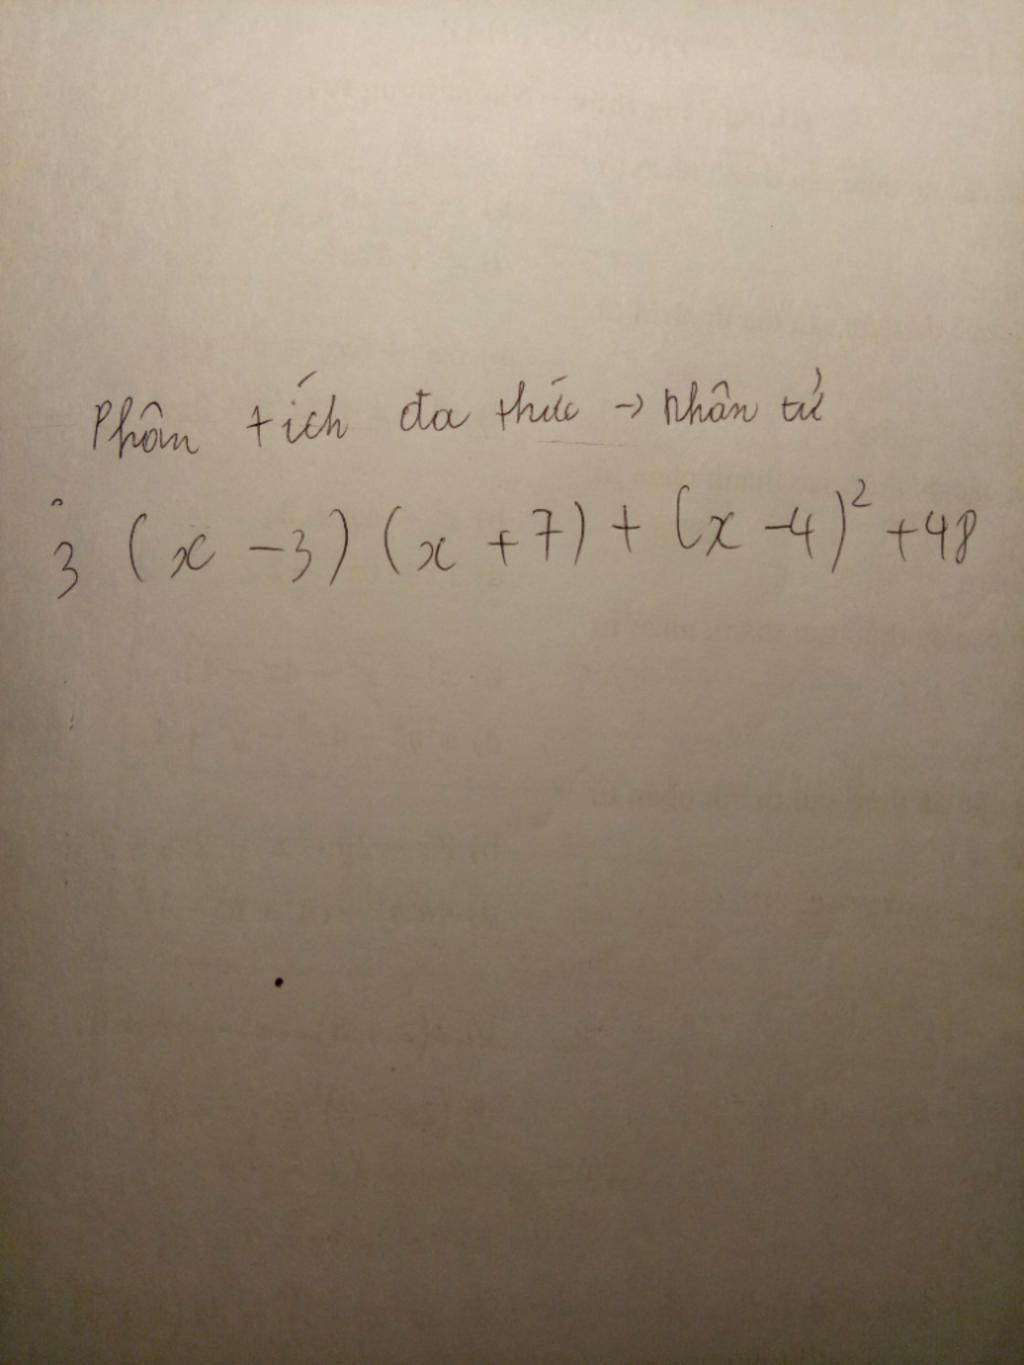 Phân tích đa thức → nhân tử
3 (x - 3) (x + 7) + (x - 4)² + 48